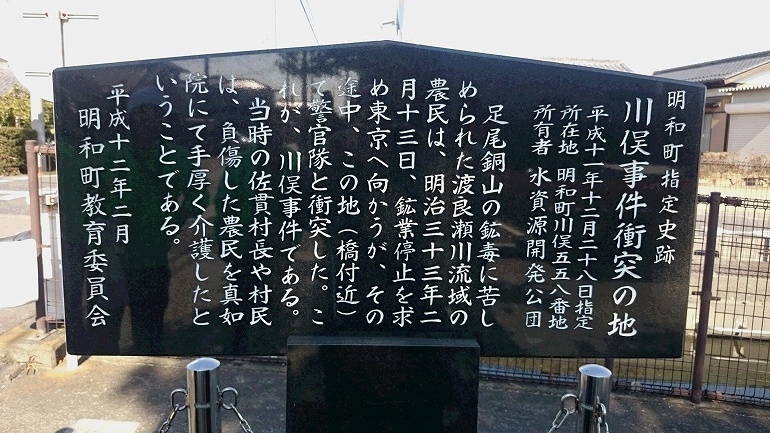 明和町指定史跡
川俣事件衝突の地
平成十一年十二月二十八日指定
所在地 明和町川俣五五八番地
所有者 水資源開発公団
足尾銅山の鉱毒に苦し
められた渡良瀬川流域の
農民は、明治三十三年二
月十三日、鉱業停止を求
め東京へ向かうが、その
途中、この地（橋付近）
で警官隊と衝突した。こ
れが、川俣事件である。
当時の佐貫村長や村民
は、負傷した農民を真如
院にて手厚く介護したと
いうことである。
平成十二年二月
明和町教育委員会